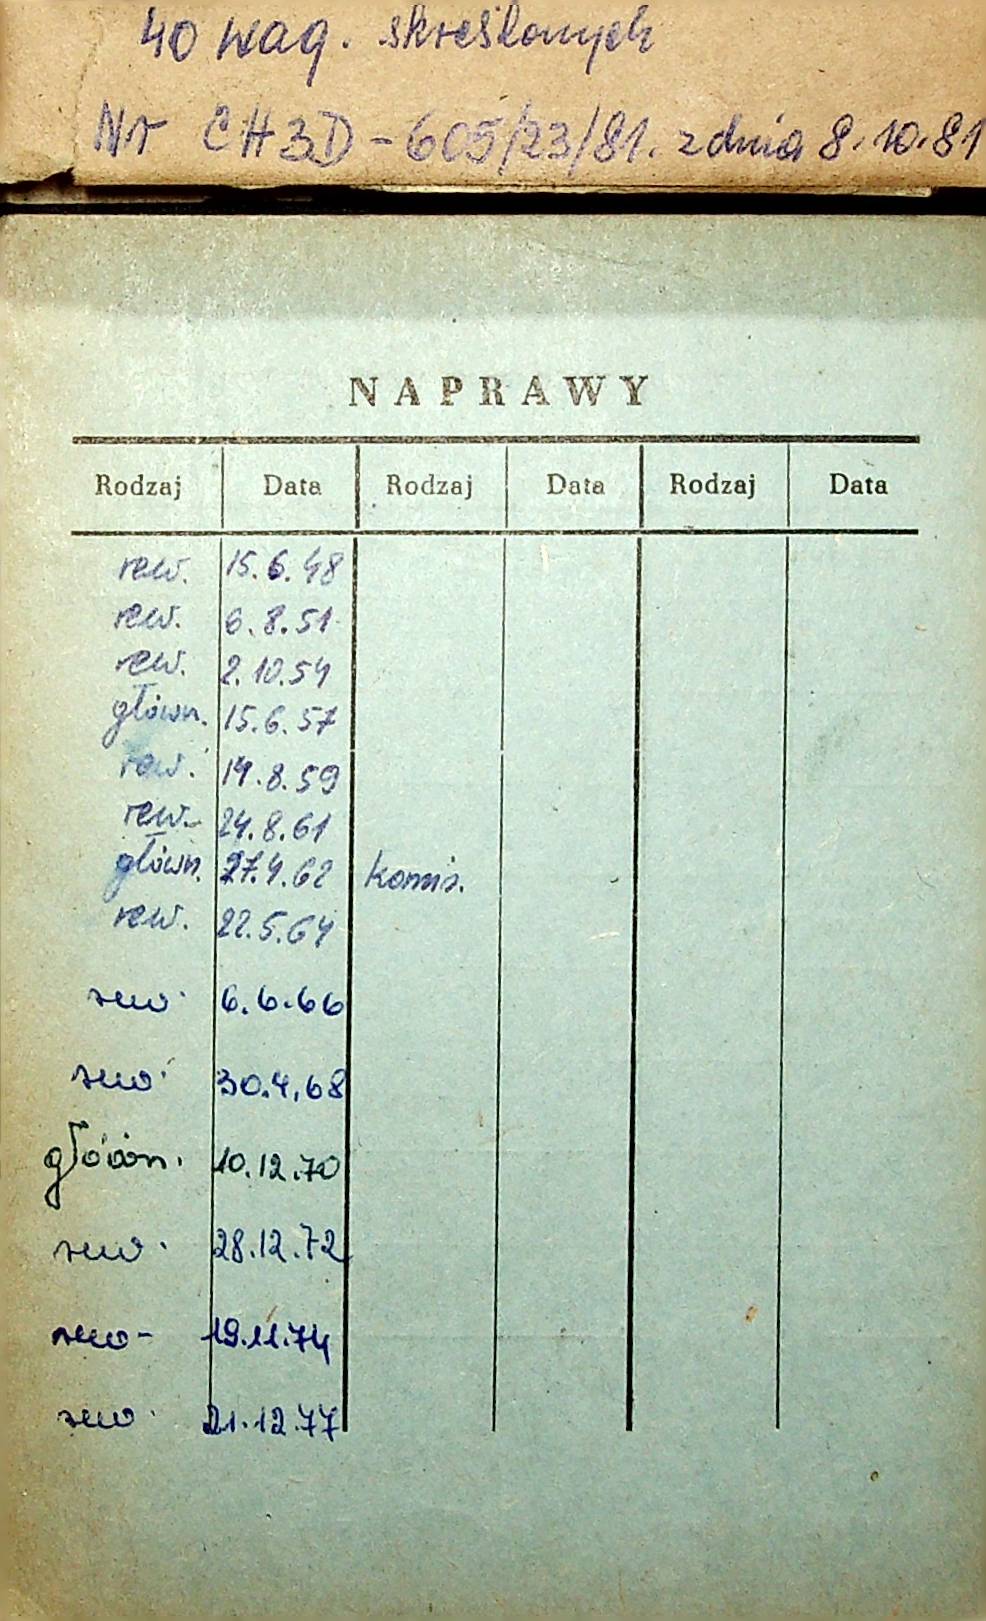 40 wag. skreślonych
Nr CH3D-605/23/81. z dnia 8.10.81
NAPRAWY
Rodzaj Data Rodzaj Data Rodzaj Data
rew. 15.6.48
rew. 6.8.51
rew. 2.10.54
główn. 15.6.57
rew. 14.8.59
rew. 24.8.61
główn. 27.4.62 komis.
rew. 22.5.64
rew. 6.6.66
rew. 30.4.68
główn. 10.12.70
rew. 28.12.72
rew- 19.11.74
rew. 21.12.77